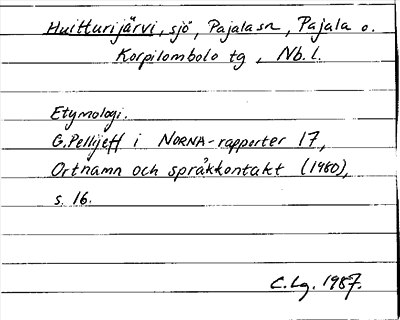 Huitturijärvi, sjö, Pajala sn, Pajala o.
Korpilombolo tg, Nb. l.
Etymologi.
G. Pellijeff i NORNA-rapporter 17,
Ortnamn och språkkontakt (1980),
s. 16.
C. Lg. 1987.